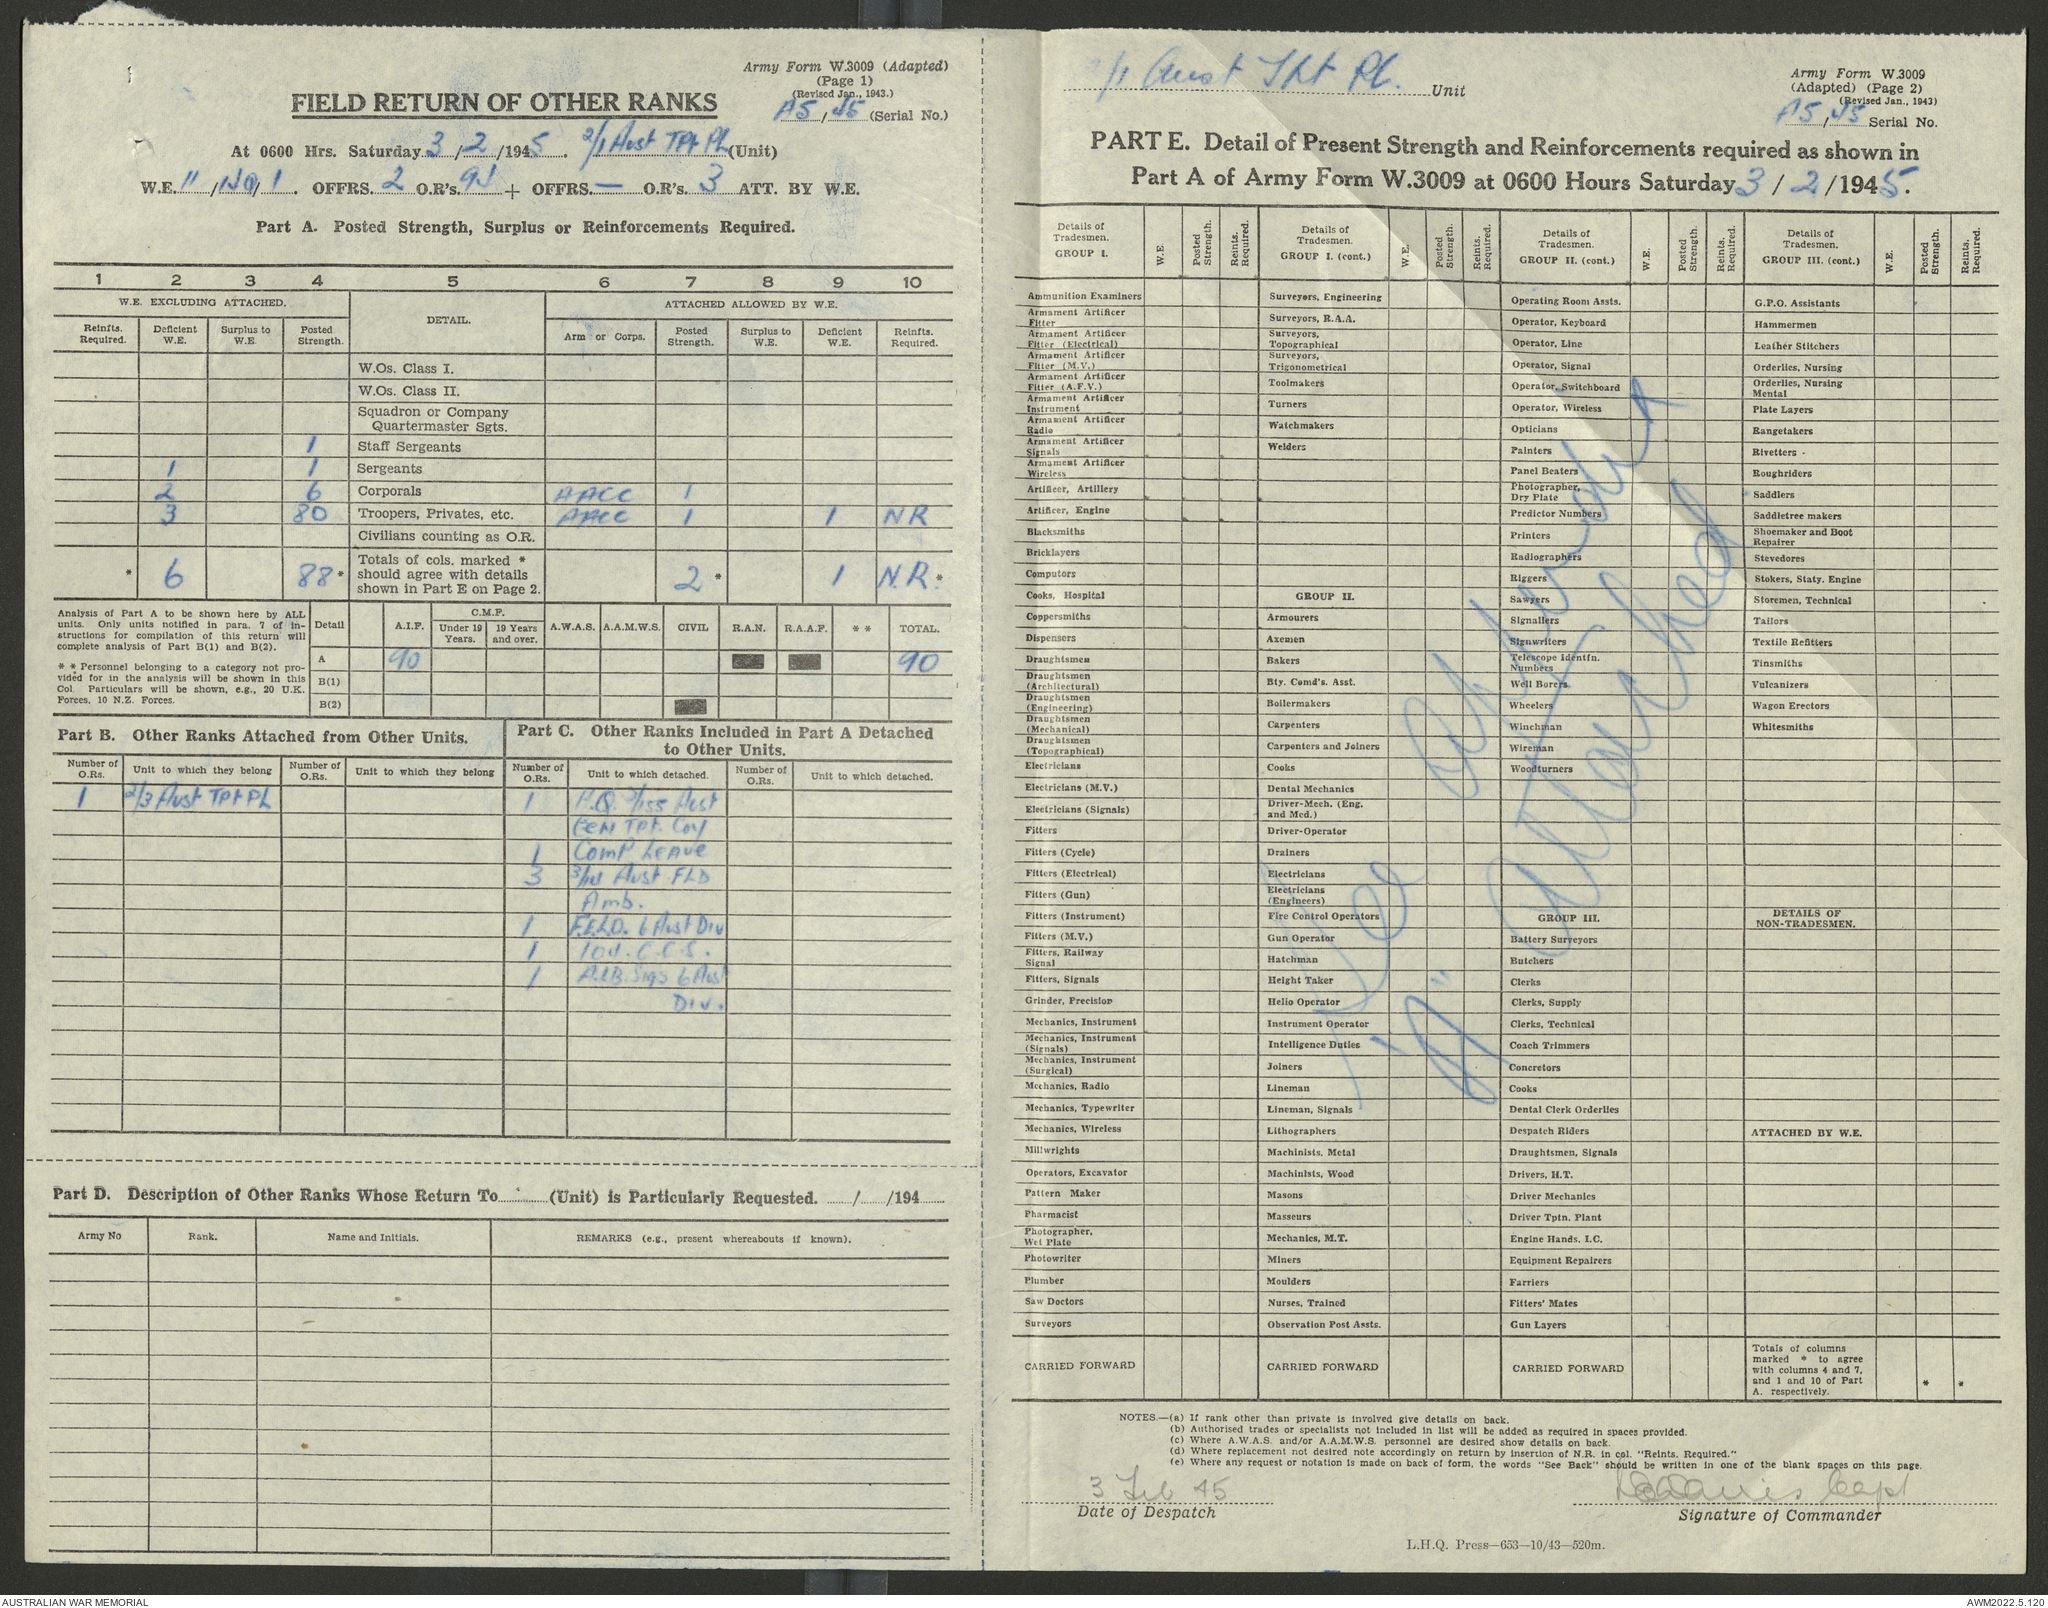 Army Form W.3009 (Adapted)
(Page 1)
(Revised Jan., 1943.)
FIELD RETURN OF OTHER RANKS
A5/45 (Serial No.)
At 0600 Hrs. Saturday 3/2/1945. 2/1 Aust TPt PL (Unit)
W.E. 11/140/1. OFFRS. 2 O.R's. 94 + OFFRS. — O.R's. 3 ATT. BY W.E.
Part A. Posted Strength, Surplus or Reinforcements Required.
1 2 3 4 5 6 7 8 9 10
W.E. EXCLUDING ATTACHED. DETAIL. ATTACHED ALLOWED BY W.E.
Reinfts. Required. Deficient W.E. Surplus to W.E. Posted Strength. Arm or Corps. Posted Strength. Surplus to W.E. Deficient W.E. Reinfts. Required.
W.Os. Class I.
W.Os. Class II.
Squadron or Company
Quartermaster Sgts.
1 Staff Sergeants
1 1 Sergeants
2 6 Corporals AACC 1
3 80 Troopers, Privates, etc. AACC 1 1 NR
Civilians counting as O.R.
* 6 88* Totals of cols. marked * should agree with details shown in Part E on Page 2. 2* 1 N.R.*
Analysis of Part A to be shown here by ALL
units. Only units notified in para. 7 of in-
structions for compilation of this return will
complete analysis of Part B(1) and B(2).
* * Personnel belonging to a category not pro-
vided for in the analysis will be shown in this
Col. Particulars will be shown, e.g., 20 U.K.
Forces, 10 N.Z. Forces.
Detail A.I.F. C.M.F. Under 19 Years. 19 Years and over. A.W.A.S. A.A.M.W.S. CIVIL R.A.N. R.A.A.F. * * TOTAL.
A 90 90
B(1)
B(2)
Part B. Other Ranks Attached from Other Units.
Number of O.Rs. Unit to which they belong Number of O.Rs. Unit to which they belong
1 2/3 Aust TPt PL
Part C. Other Ranks Included in Part A Detached
to Other Units.
Number of O.Rs. Unit to which detached. Number of O.Rs. Unit to which detached.
1 H.Q. 2/155 Aust
Gen TPt. Coy
1 Comp Leave
3 3/14 Aust FLD
Amb.
1 F.E.L.O. 6 Aust Div
1 104. C.C.S.
1 A.I.B. Sigs 6 Aust
Div.
Part D. Description of Other Ranks Whose Return To (Unit) is Particularly Requested. / /194
Army No Rank. Name and Initials. REMARKS (e.g., present whereabouts if known).
2/1 Aust Tpt Pl. Unit
Army Form W.3009
(Adapted) (Page 2)
(Revised Jan., 1943)
A5/45 Serial No.
PART E. Detail of Present Strength and Reinforcements required as shown in
Part A of Army Form W.3009 at 0600 Hours Saturday 3/2/1945.
Details of Tradesmen. GROUP I. W.E. Posted Strength. Reints. Required.
Ammunition Examiners
Armament Artificer Fitter
Armament Artificer Fitter (Electrical)
Armament Artificer Fitter (M.V.)
Armament Artificer Fitter (A.F.V.)
Armament Artificer Instrument
Armament Artificer Radio
Armament Artificer Signals
Armament Artificer Wireless
Artificer, Artillery
Artificer, Engine
Blacksmiths
Bricklayers
Computors
Cooks, Hospital
Coppersmiths
Dispensers
Draughtsmen
Draughtsmen (Architectural)
Draughtsmen (Engineering)
Draughtsmen (Mechanical)
Draughtsmen (Topographical)
Electricians
Electricians (M.V.)
Electricians (Signals)
Fitters
Fitters (Cycle)
Fitters (Electrical)
Fitters (Gun)
Fitters (Instrument)
Fitters (M.V.)
Fitters, Railway Signal
Fitters, Signals
Grinder, Precision
Mechanics, Instrument
Mechanics, Instrument (Signals)
Mechanics, Instrument (Surgical)
Mechanics, Radio
Mechanics, Typewriter
Mechanics, Wireless
Millwrights
Operators, Excavator
Pattern Maker
Pharmacist
Photographer, Wet Plate
Photowriter
Plumber
Saw Doctors
Surveyors
CARRIED FORWARD
Details of Tradesmen. GROUP I. (cont.) W.E. Posted Strength. Reints. Required.
Surveyors, Engineering
Surveyors, R.A.A.
Surveyors, Topographical
Surveyors, Trigonometrical
Toolmakers
Turners
Watchmakers
Welders
GROUP II.
Armourers
Axemen
Bakers
Bty. Comd's. Asst.
Boilermakers
Carpenters
Carpenters and Joiners
Cooks
Dental Mechanics
Driver-Mech. (Eng. and Med.)
Driver-Operator
Drainers
Electricians
Electricians (Engineers)
Fire Control Operators
Gun Operator
Hatchman
Height Taker
Helio Operator
Instrument Operator
Intelligence Duties
Joiners
Lineman
Lineman, Signals
Lithographers
Machinists, Metal
Machinists, Wood
Masons
Masseurs
Mechanics, M.T.
Miners
Moulders
Nurses, Trained
Observation Post Assts.
CARRIED FORWARD
Details of Tradesmen. GROUP II. (cont.) W.E. Posted Strength. Reints. Required.
Operating Room Assts.
Operator, Keyboard
Operator, Line
Operator, Signal
Operator, Switchboard
Operator, Wireless
Opticians
Painters
Panel Beaters
Photographer, Dry Plate
Predictor Numbers
Printers
Radiographers
Riggers
Sawyers
Signallers
Signwriters
Telescope Identfn. Numbers
Well Borers
Wheelers
Winchman
Wireman
Woodturners
GROUP III.
Battery Surveyors
Butchers
Clerks
Clerks, Supply
Clerks, Technical
Coach Trimmers
Concretors
Cooks
Dental Clerk Orderlies
Despatch Riders
Draughtsmen, Signals
Drivers, H.T.
Driver Mechanics
Driver Tptn. Plant
Engine Hands, I.C.
Equipment Repairers
Farriers
Fitters' Mates
Gun Layers
CARRIED FORWARD
Details of Tradesmen. GROUP III. (cont.) W.E. Posted Strength. Reints. Required.
G.P.O. Assistants
Hammermen
Leather Stitchers
Orderlies, Nursing
Orderlies, Nursing Mental
Plate Layers
Rangetakers
Rivetters
Roughriders
Saddlers
Saddletree makers
Shoemaker and Boot Repairer
Stevedores
Stokers, Staty. Engine
Storemen, Technical
Tailors
Textile Refitters
Tinsmiths
Vulcanizers
Wagon Erectors
Whitesmiths
DETAILS OF NON-TRADESMEN.
ATTACHED BY W.E.
Totals of columns marked * to agree with columns 4 and 7, and 1 and 10 of Part A. respectively. * *
See Appendix
"A" Attached
NOTES.—(a) If rank other than private is involved give details on back.
(b) Authorised trades or specialists not included in list will be added as required in spaces provided.
(c) Where A.W.A.S. and/or A.A.M.W.S. personnel are desired show details on back.
(d) Where replacement not desired note accordingly on return by insertion of N.R. in col. "Reints. Required."
(e) Where any request or notation is made on back of form, the words "See Back" should be written in one of the blank spaces on this page.
3 Feb 45
Date of Despatch
Davies Capt
Signature of Commander
L.H.Q. Press—653—10/43—520m.
AUSTRALIAN WAR MEMORIAL
AWM2022.5.120